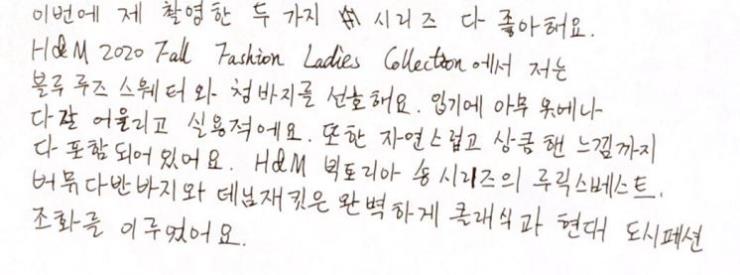 이번에 제 촬영한 두 가지 시리즈 다 좋아해요.
H&M 2020 Fall Fashion Ladies Collection에서 저는
블루 루즈 스웨터와 청바지를 선호해요. 입기에 아무 옷에나
다 잘 어울리고 실용적에요. 또한 자연스럽고 상큼핸 느낌까지
다 포함되어 있어요. H&M 빅토리아 송 시리즈의 루릭스베스트.
버뮤다반바지와 데님재킷은 완벽하게 클래식과 현대 도시패션
조화를 이루었어요.